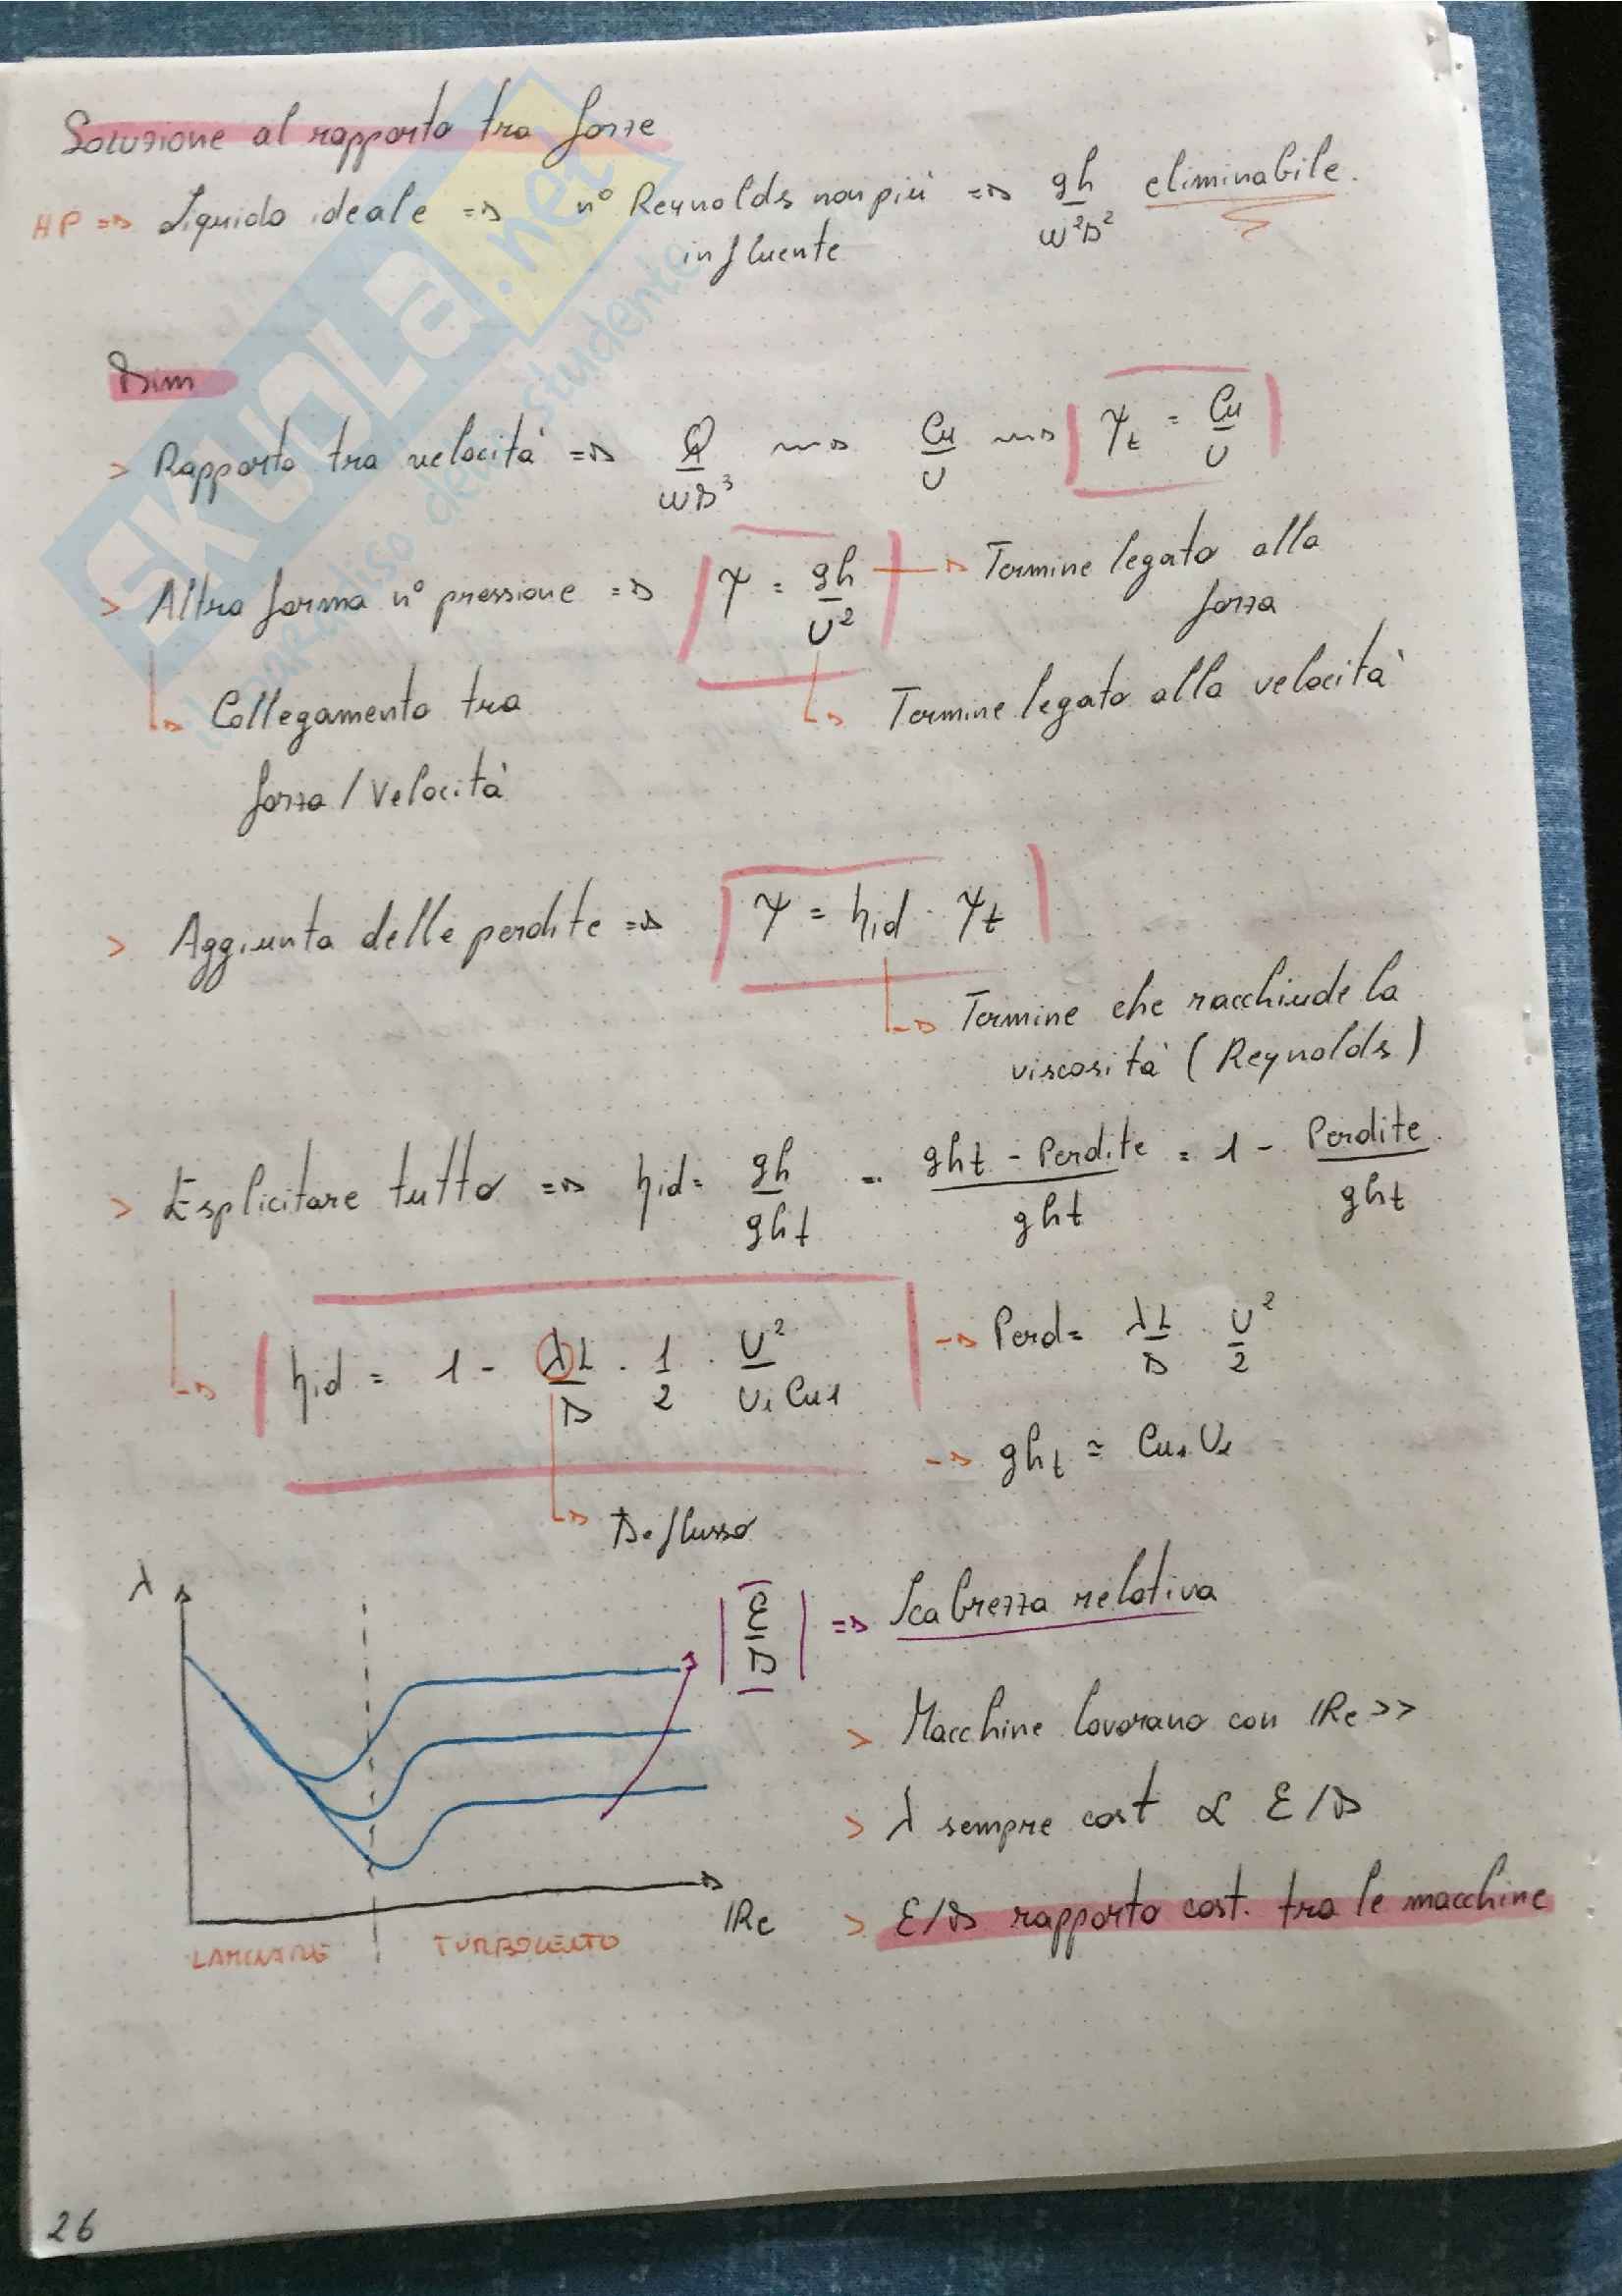 Soluzione al rapporto tra forze
HP => Liquido ideale => n° Reynolds non più influente => gh/ω²D² eliminabile.
Dim
> Rapporto tra velocità => Q/ωD³ ~~> Cu/U ~~> ψt = Cu/U
> Altra forma n° pressione => ψ = gh/U² -> Termine legato alla forza
-> Termine legato alla velocità
-> Collegamento tra
forza / Velocità
> Aggiunta delle perdite => ψ = ηid · ψt
-> Termine che racchiude la
viscosità (Reynolds)
> Esplicitare tutto => ηid = gh/ght = (ght - Perdite)/ght = 1 - Perdite/ght
-> ηid = 1 - λL/D · 1/2 · U²/U₁Cu₁
-> Perd = λL/D · U²/2
-> ght ≈ Cu₁U₁
-> Deflusso
λ
|ε/D| => Scabrezza relativa
> Macchine lavorano con IRe >>
> λ sempre cost α ε/D
IRe
> ε/D rapporto cost. tra le macchine
LAMINARE TURBOLENTO
26
SKUOLA.net
il paradiso dello studente